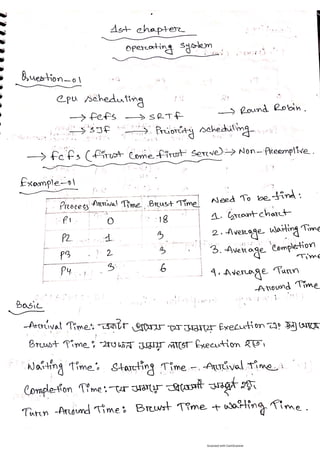 1st chapter
operating system
Question-01
Cpu scheduling
→ fcfs → SRTf → Round Robin.
→ SJF → Priority scheduling
→ fcfs (first come first serve) → Non-Preemptive.
Example-01
Need To be find:
Process Arrival Time Brust Time
P1 0 18
P2 1 3
P3 2 3
P4 3 6
1. Grant chart
2. Average Waiting Time
3. Average Completion Time
4. Average Turn Around Time
Basic
Arrival Time: Execution
Brust Time: Execution
Waiting Time: Starting Time - Arrival Time
Completion Time:
Turn Around Time: Brust Time + waiting Time.